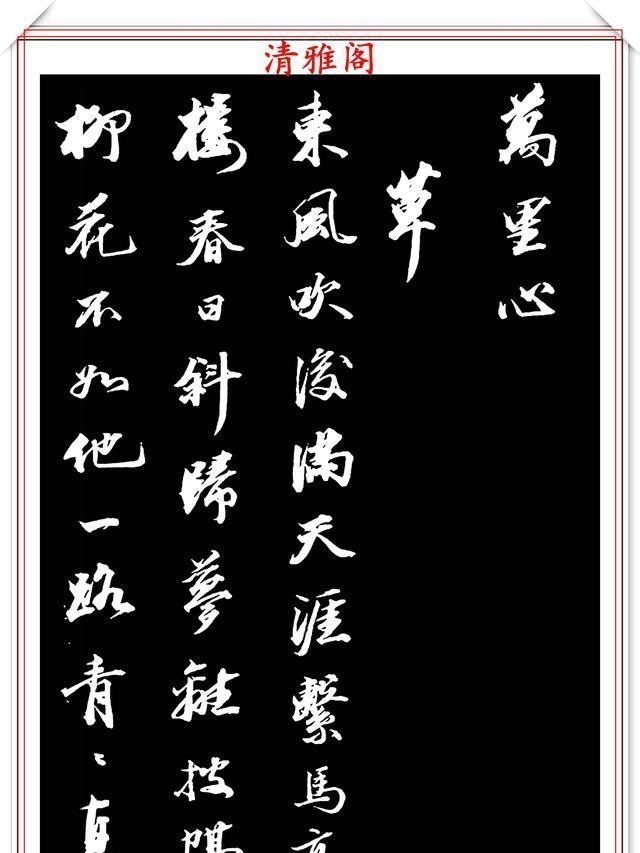 清雅阁
萬里心
草
東風吹滿天涯繫馬高
樓春日斜歸夢離披
柳花不如他一路青〻直